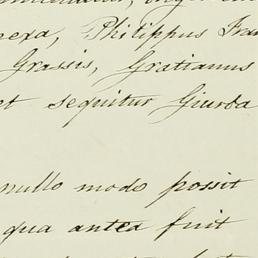 nexa, Philippus Fran
Grassis, Gratianus
et sequitur Giurba
nullo modo possit
qua antea fuit